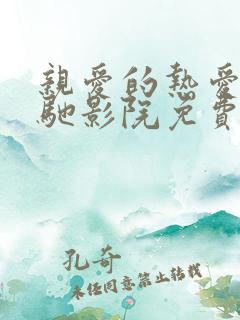 親愛的熱愛
馳影院免費
孔奇
未任同意禁止转载